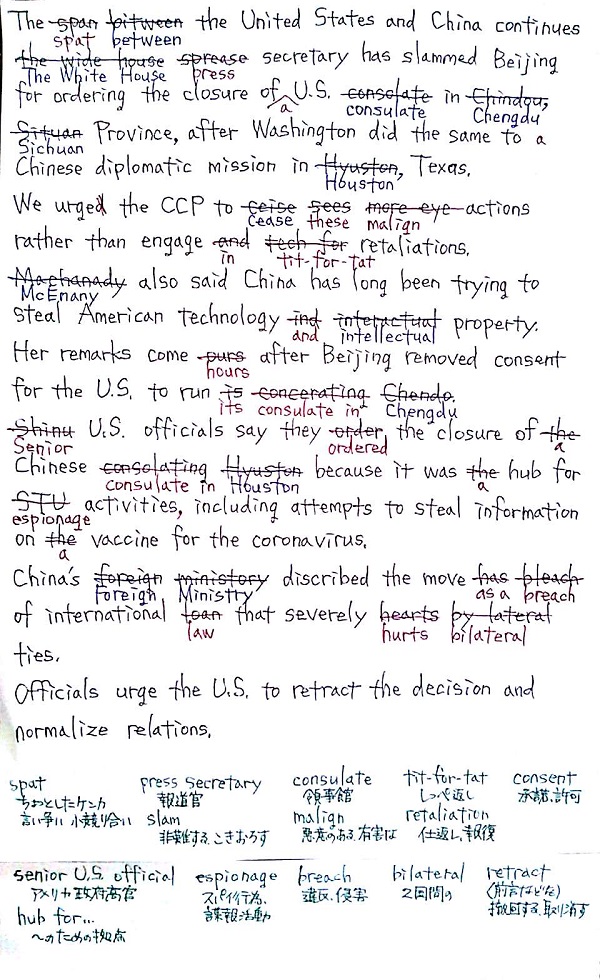 The span bitween the United States and China continues
spat between
the wide house sprease secretary has slammed Beijing
The White House press
for ordering the closure of U.S. consolate in Chindou,
a consulate Chengdu
Situan Province, after Washington did the same to a
Sichuan
Chinese diplomatic mission in Hyuston, Texas.
Houston
We urged the CCP to ceise sees more eye actions
Cease these malign
rather than engage and tech for retaliations.
in tit-for-tat
Machanady also said China has long been trying to
McEnany
steal American technology ind interactual property.
and intellectual
Her remarks come ours after Beijing removed consent
hours
for the U.S. to run is concerating Chendo.
its consulate in Chengdu
Shinu U.S. officials say they order the closure of the
Senior ordered a
Chinese consolating Hyuston because it was the hub for
consulate in Houston a
STU activities, including attempts to steal information
espionage
on the vaccine for the coronavirus.
a
China's foreign ministory discribed the move has bleach
Foreign Ministry as a breach
of international loan that severely hearts by lateral
law hurts bilateral
ties.
Officials urge the U.S. to retract the decision and
normalize relations.
spat press secretary consulate tit-for-tat consent
ちょっとしたケンカ 報道官 領事館 しっぺ返し 承諾、許可
言い争い 小競り合い slam malign retaliation
非難する、こきおろす 悪意のある、有害な 仕返し、報復
senior U.S. official espionage breach bilateral retract
アメリカ政府高官 スパイ行為、 違反、侵害 2国間の (前言などを)
hub for... 諜報活動 撤回する、取り消す
へのための拠点